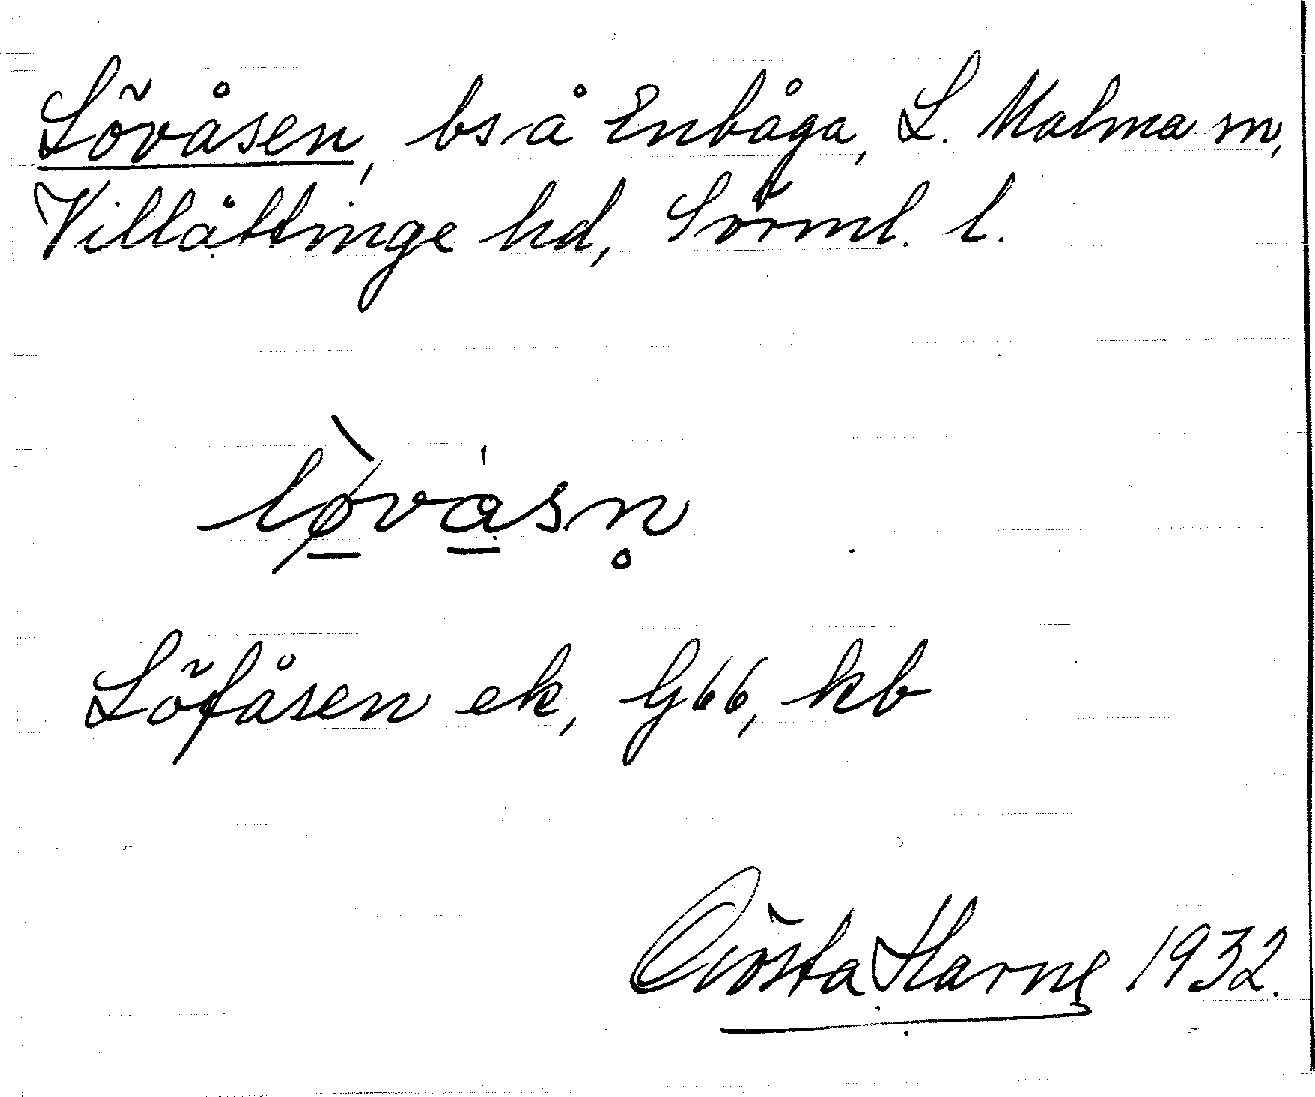 Lövåsen, bs å Enbåga, L. Malma sn,
Villåttinge hd, Sörml. l.
lø̀våsn̥
Löfåsen ek, G66, kb
Gösta Harne 1932.